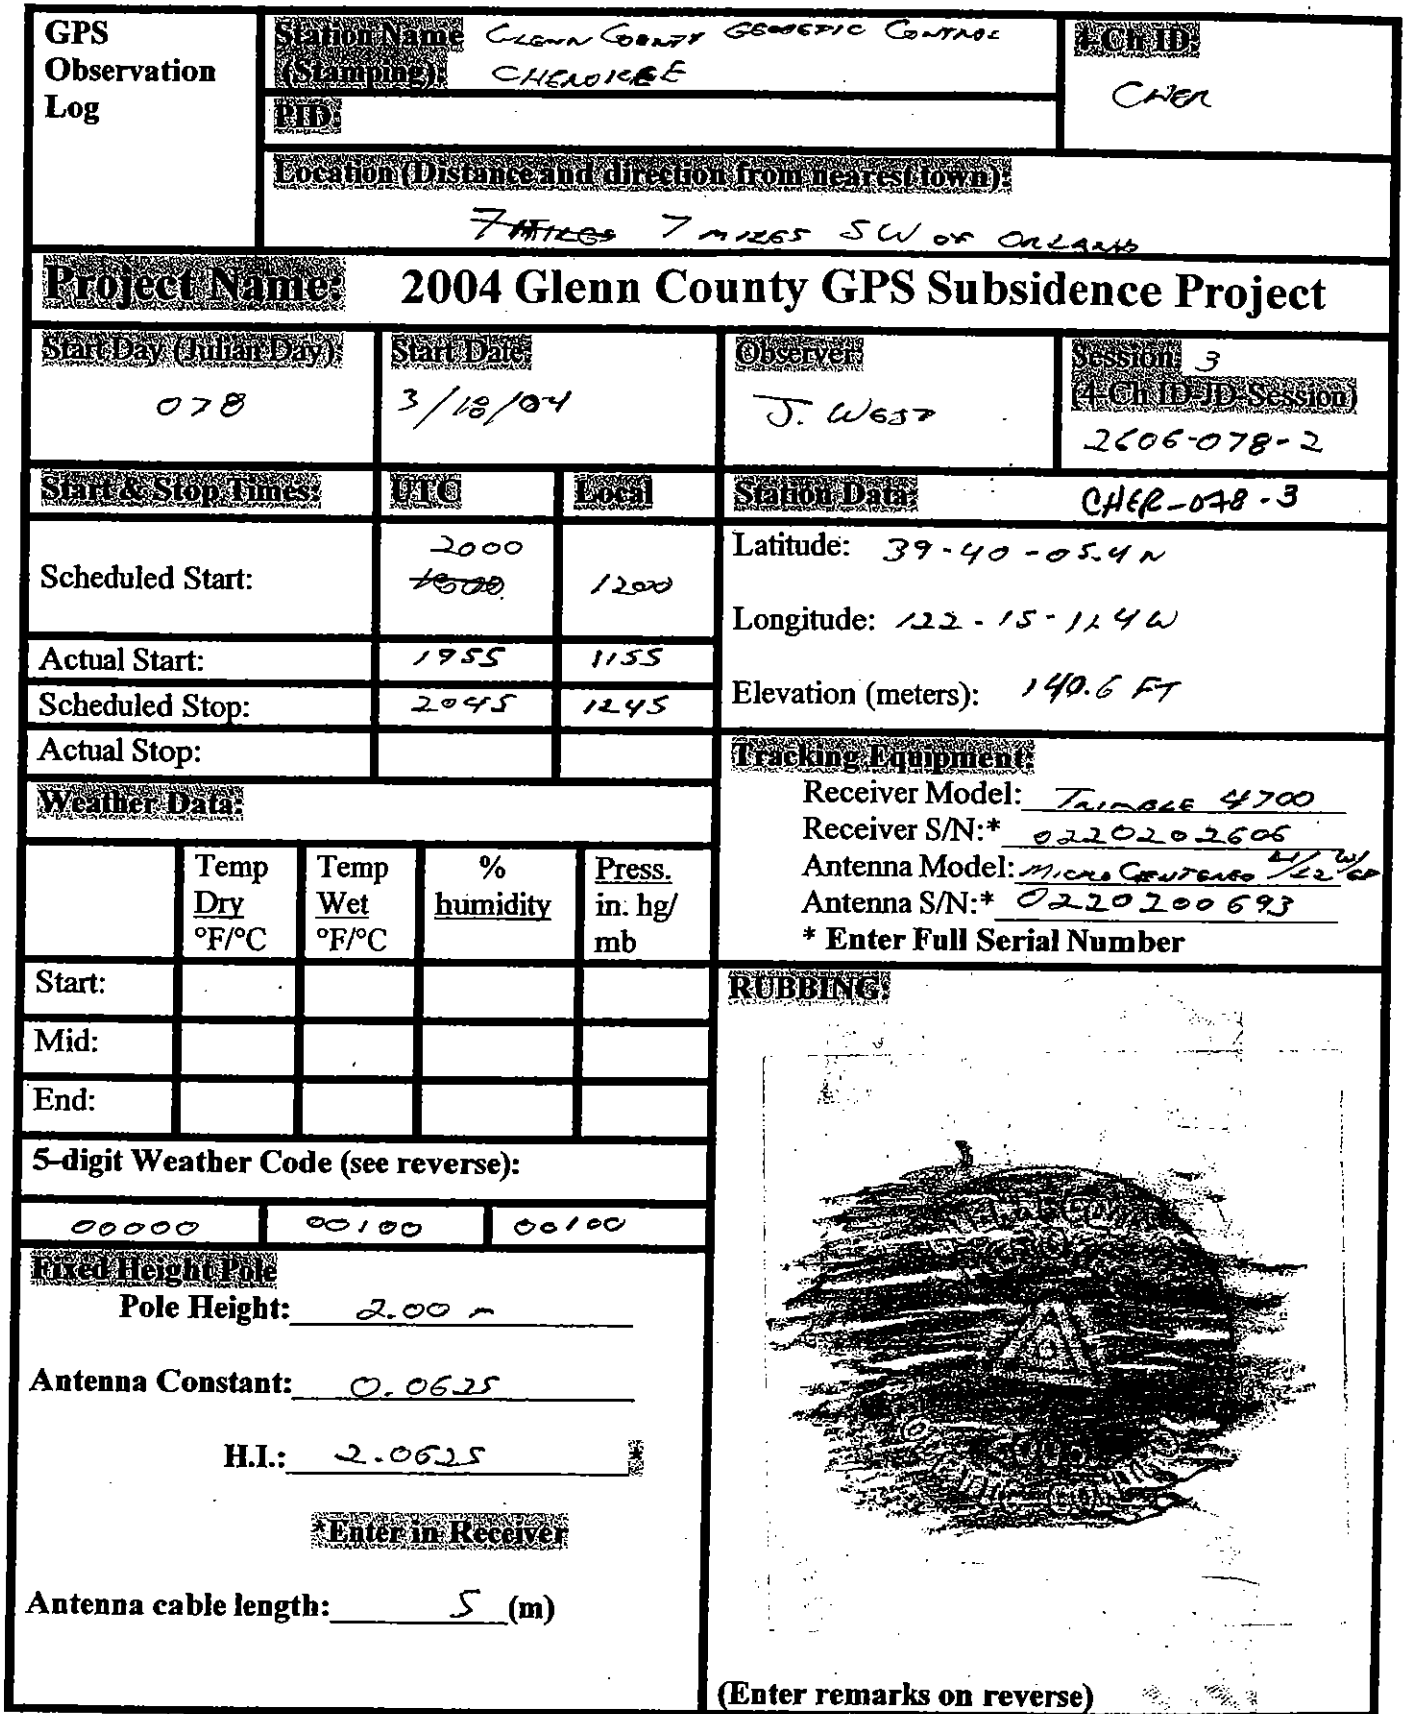 GPS
Observation
Log
Station Name GLENN COUNTY GEODETIC CONTROL
(Stamping): CHEROKEE
4-Ch ID:
CHER
PID:
Location (Distance and direction from nearest town):
7 MILES 7 MILES SW OF ORLAND
Project Name: 2004 Glenn County GPS Subsidence Project
Start Day (Julian Day):
078
Start Date:
3/18/04
Observer:
J. WEST
Session: 3
(4-Ch ID-JD-Session)
2606-078-2
CHER-078-3
Start & Stop Times: UTC Local
Scheduled Start: 2000 1200
Actual Start: 1955 1155
Scheduled Stop: 2045 1245
Actual Stop:
Station Data:
Latitude: 39-40-05.4 N
Longitude: 122-15-11.4 W
Elevation (meters): 140.6 FT
Tracking Equipment:
Receiver Model: TRIMBLE 4700
Receiver S/N:* 0220202606
Antenna Model: MICRO CENTERED L1/L2 W/GP
Antenna S/N:* 0220200693
* Enter Full Serial Number
Weather Data:
Temp
Dry
°F/°C
Temp
Wet
°F/°C
%
humidity
Press.
in. hg/
mb
Start:
Mid:
End:
5-digit Weather Code (see reverse):
00000 00100 00100
Fixed Height Pole
Pole Height: 2.00 m
Antenna Constant: 0.0625
H.I.: 2.0625 *
*Enter in Receiver
Antenna cable length: 5 (m)
RUBBING:
(Enter remarks on reverse)